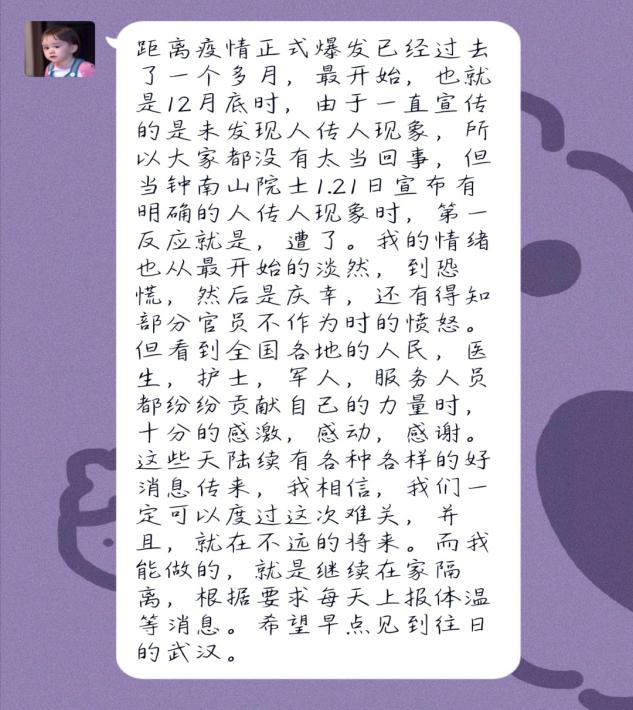 距离疫情正式爆发已经过去
了一个多月，最开始，也就
是12月底时，由于一直宣传
的是未发现人传人现象，所
以大家都没有太当回事，但
当钟南山院士1.21日宣布有
明确的人传人现象时，第一
反应就是，遭了。我的情绪
也从最开始的淡然，到恐
慌，然后是庆幸，还有得知
部分官员不作为时的愤怒。
但看到全国各地的人民，医
生，护士，军人，服务人员
都纷纷贡献自己的力量时，
十分的感激，感动，感谢。
这些天陆续有各种各样的好
消息传来，我相信，我们一
定可以度过这次难关，并
且，就在不远的将来。而我
能做的，就是继续在家隔
离，根据要求每天上报体温
等消息。希望早点见到往日
的武汉。